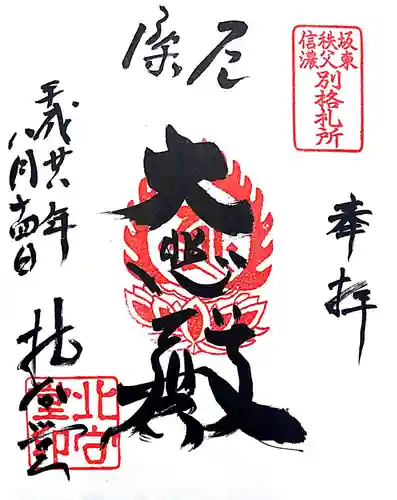 坂東
秩父
信濃
別格札所
奉拝
厄除
大悲殿
平成廿八年
八月十四日
北向堂
北向
堂印